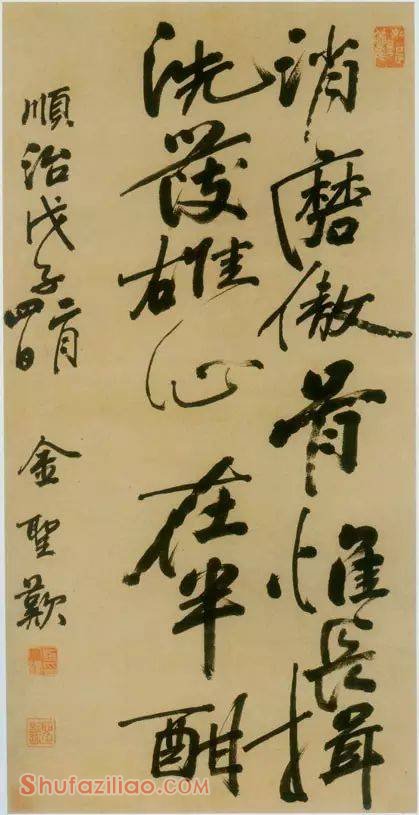 消磨傲骨惟長揖
洗發雄心在半酣
順治戊子二月四日 金聖歎
Shufaziliao.com